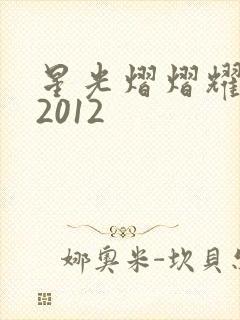 星光熠熠耀
2012
娜奥米-坎貝